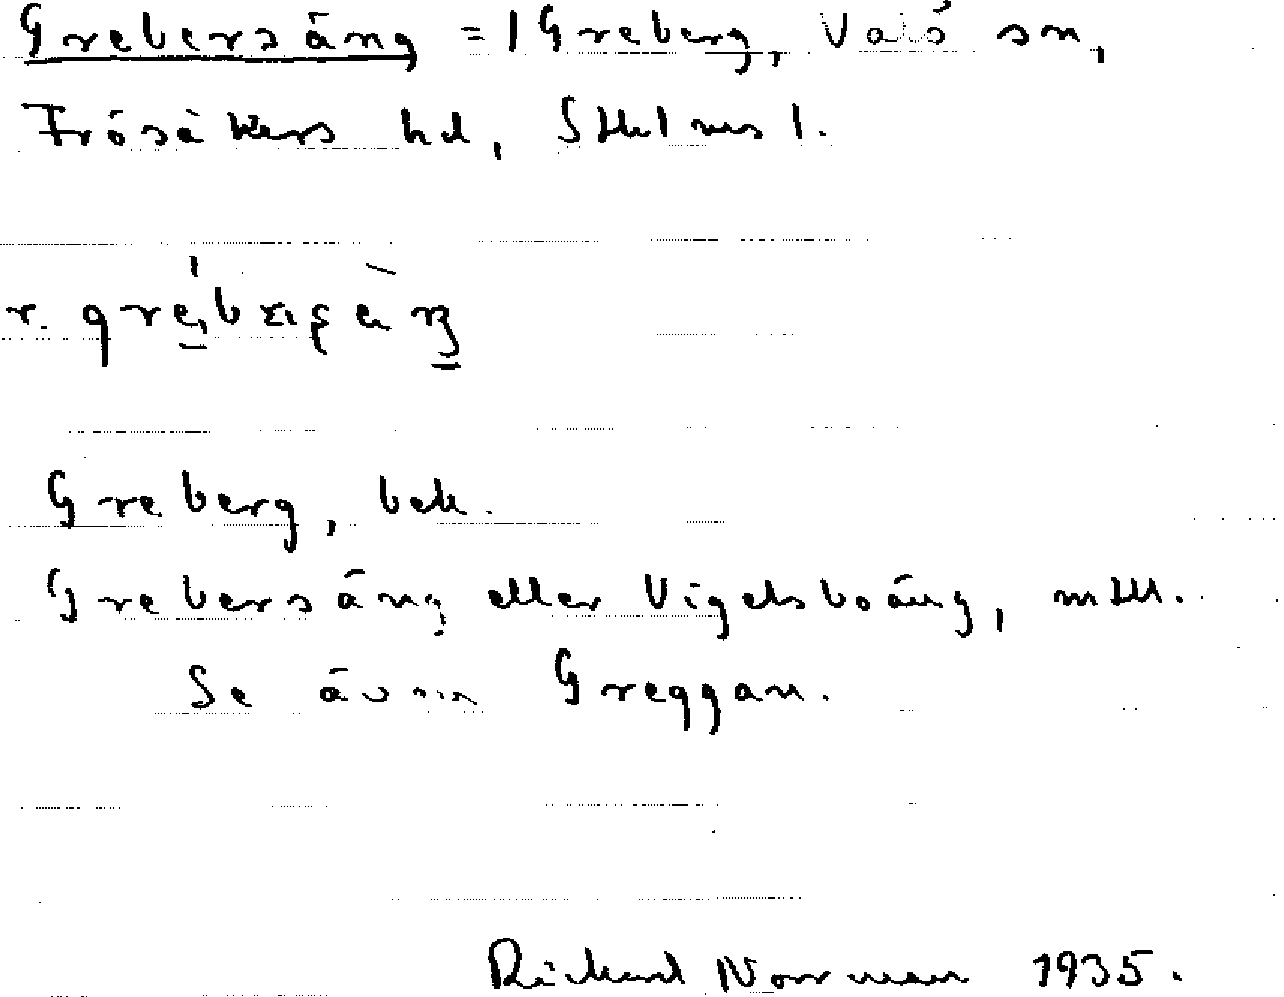 Grebersäng = 1 Greberg, Valö sn,
Frösåkers hd, Sthlms l.
Greberg, bek.
Grebersäng eller Vigelsboäng, mtll.
Se även Greggan.
Rickard Norrman 1935.